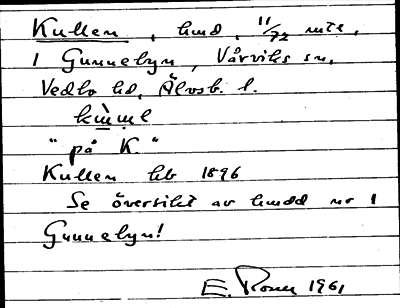 Kullen, hmd, 11/72 mtl,
1 Gunnebyn, Vårviks sn,
Vedbo hd, Älvsb. l.
"på K."
Kullen hb 1896
Se översikt av hmdd nr 1
Gunnebyn!
E. 1961